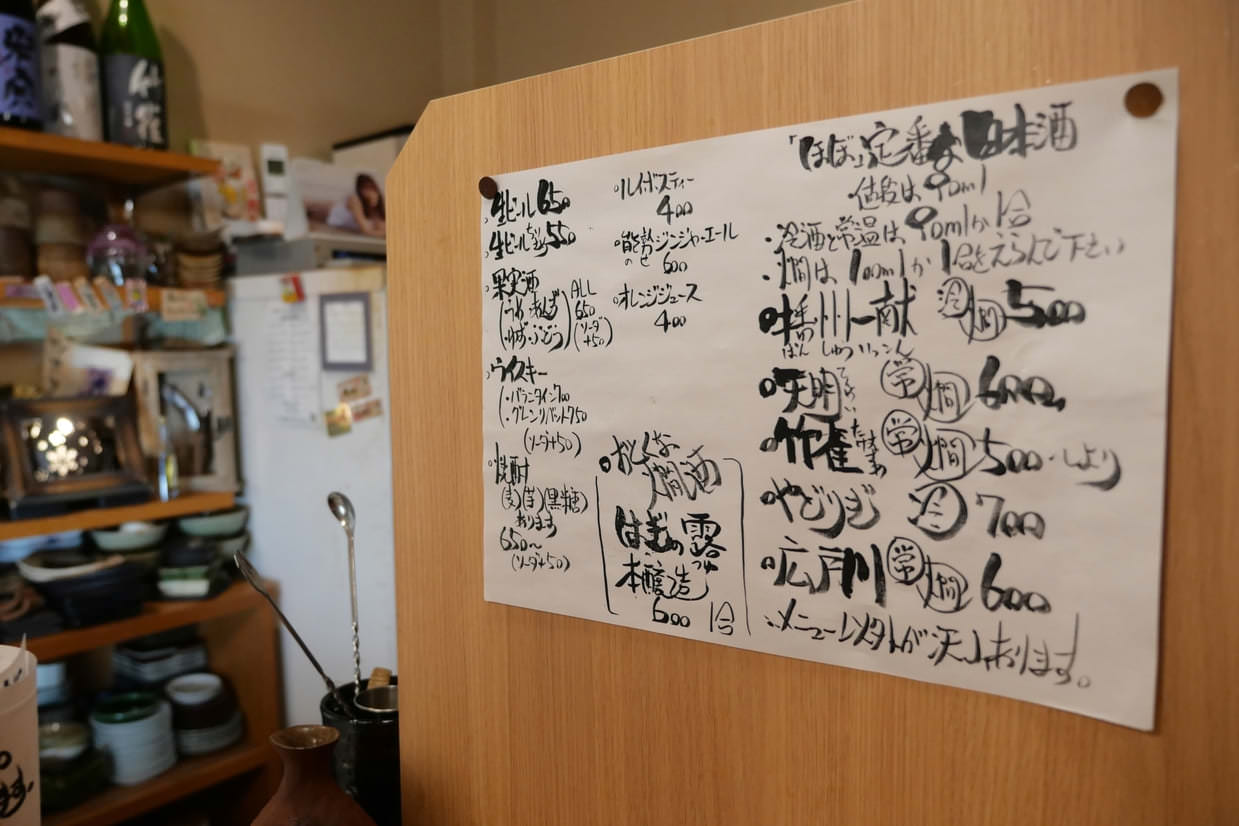 ・生ビール 650
・生ビール 550
・果実酒 ALL
うめ・あんず 650
・ゆず・ぶどう (ソーダ+50)
・ウイスキー
・バランタイン 700
・グレンリベット 750
(ソーダ+50)
・焼酎
(麦)(芋)(黒糖)
あります
650〜
(ソーダ+50)
・ルイボスティー
400
・能勢ジンジャーエール
のせ 600
・オレンジジュース
400
・おとくな
燗酒
はぎの露
本醸造 つゆ
600 1合
「ほぼ」定番な日本酒
・値段は90ml
・冷酒と常温は90mlか1合
・燗は100mlか1合をえらんで下さい
・播州一献 冷 燗 500
ばんしゅういっこん
・天明 てんめい 常 燗 600
・竹雀 たけすずめ 常 燗 500・しより
・やどりぎ 冷 700
・広戸川 常 燗 600
竹雀
ます。